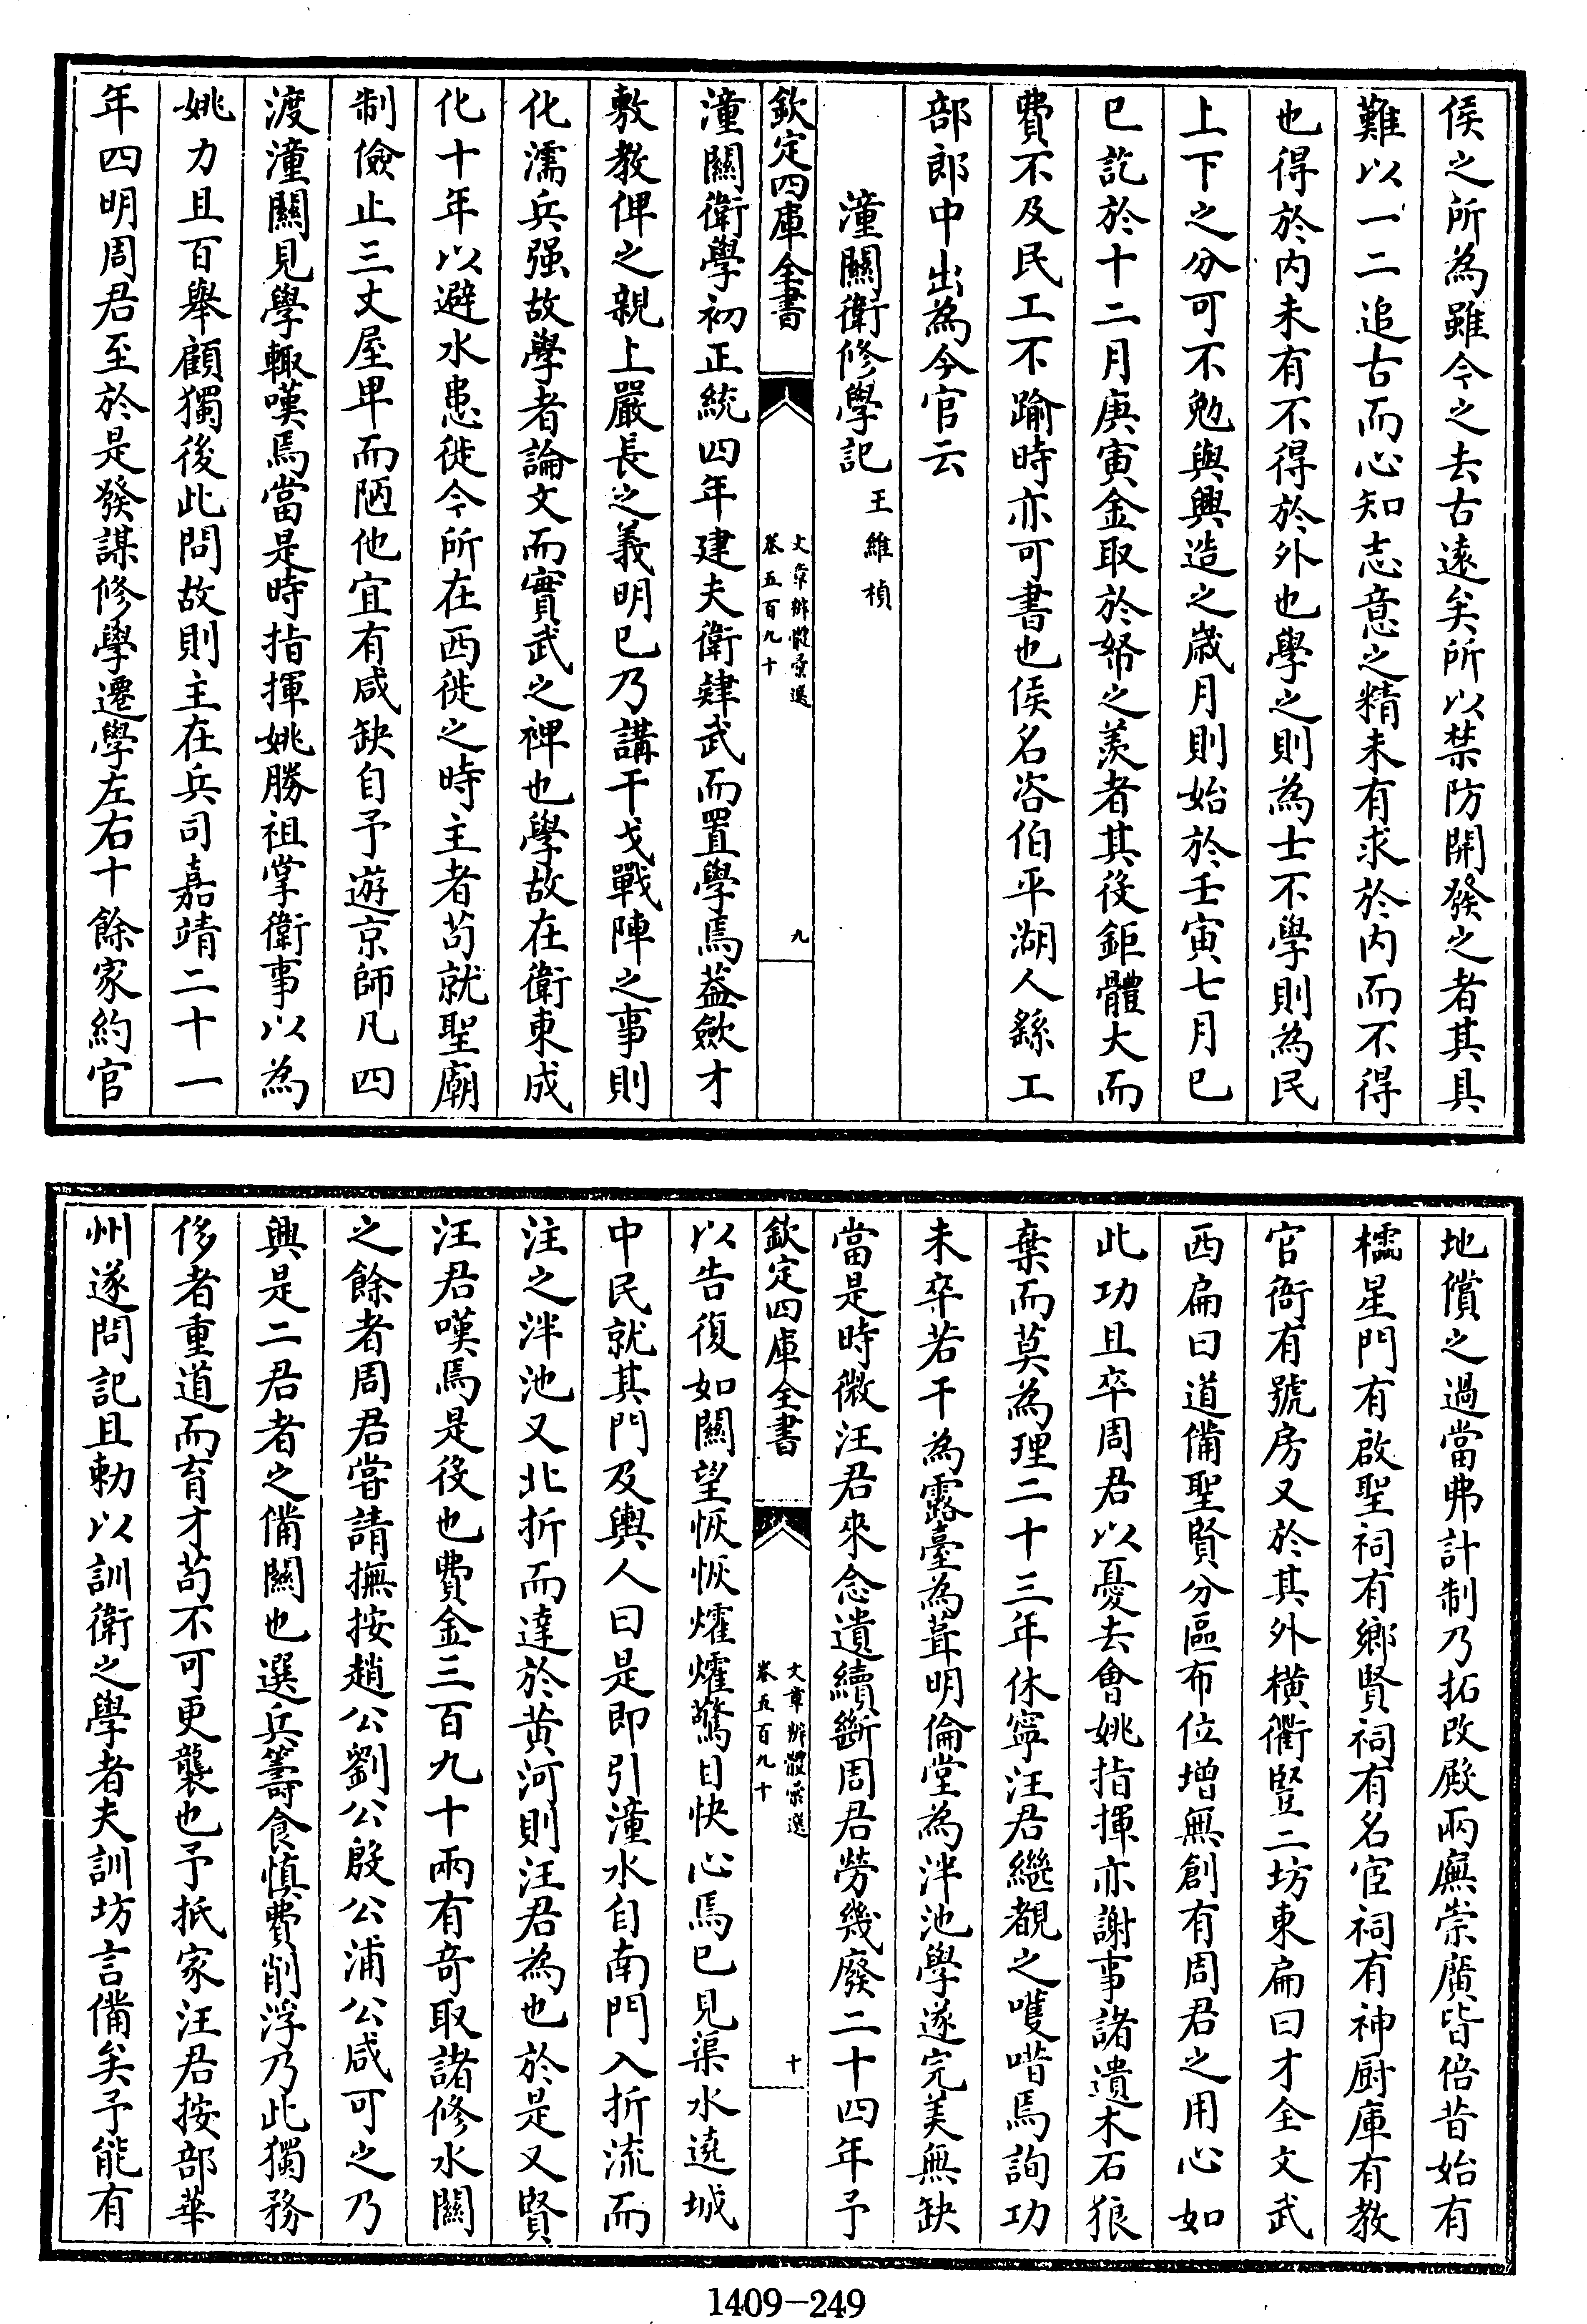 侯之所為雖今之去古遠矣所以禁防開發之者其具
難以一二追古而心知志意之精未有求於内而不得
也得於内未有不得於外也學之則為士不學則為民
上下之分可不勉與興造之嵗月則始於壬寅七月巳
巳訖於十二月庚寅金取於帑之羨者其役鉅體大而
費不及民工不踰時亦可書也侯名咨伯平湖人繇工
部郎中出為今官云
潼關衛修學記 王維楨
欽定四庫全書
文章辨體彚選
卷五百九十
九
潼關衛學初正統四年建夫衛肄武而置學焉葢斂才
敷教俾之親上嚴長之義明已乃講干戈戰陣之事則
化濡兵强故學者論文而實武之裨也學故在衛東成
化十年以避水患徙今所在西徙之時主者苟就聖廟
制儉止三丈屋卑而陋他宜有咸缺自予遊京師凡四
渡潼關見學輙嘆焉當是時指揮姚勝祖掌衛事以為
姚力且百舉顧獨後此問故則主在兵司嘉靖二十一
年四明周君至於是發謀修學遷學左右十餘家約官
地償之過當弗計制乃拓改殿兩廡崇廣皆倍昔始有
櫺星門有啟聖祠有鄉賢祠有名宦祠有神厨庫有教
官衙有號房又於其外横衢豎二坊東扁曰才全文武
西扁曰道備聖賢分區布位增無創有周君之用心如
此功且卒周君以憂去會姚指揮亦謝事諸遺木石狼
棄而莫為理二十三年休寧汪君繼覩之嘆喈焉詢功
未卒若干為露臺為葺明倫堂為泮池學遂完美無缺
當是時微汪君來念遺續斷周君勞幾廢二十四年予
欽定四庫全書
文章辨體彚選
卷五百九十
十
以告復如關望恢恢燿燿驚目快心焉已見渠水遶城
中民就其門及輿人曰是即引潼水自南門入折流而
注之泮池又北折而達於黄河則汪君為也於是又賢
汪君嘆焉是役也費金三百九十兩有奇取諸修水關
之餘者周君嘗請撫按趙公劉公殷公浦公咸可之乃
興是二君者之備關也選兵籌食慎費削浮乃此獨務
侈者重道而育才苟不可更襲也予抵家汪君按部華
州遂問記且勅以訓衛之學者夫訓坊言備矣予能有
1409-249